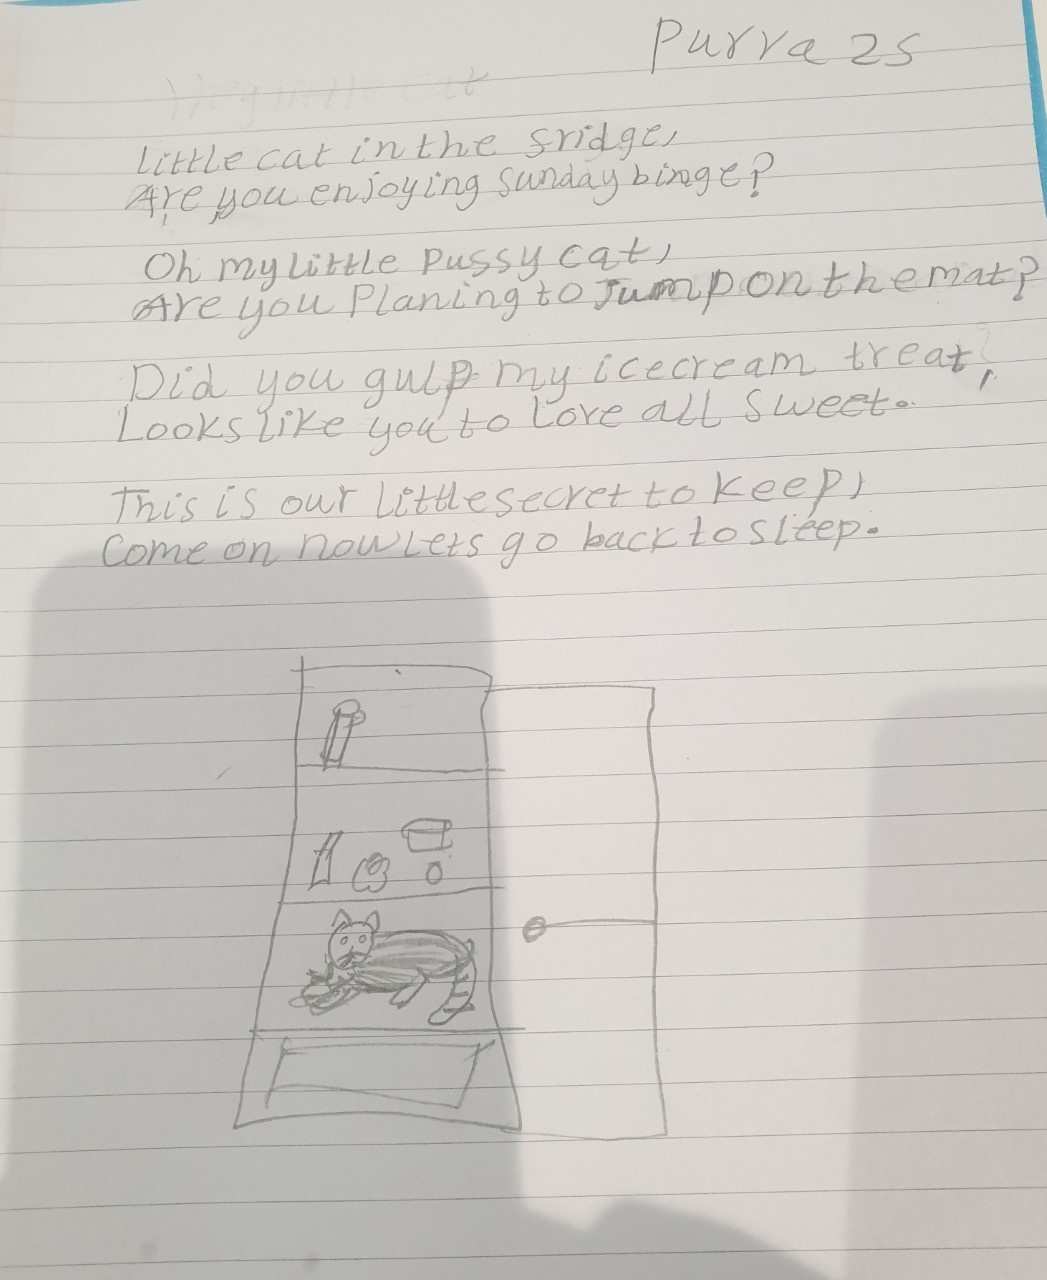 Purva 2S
Hey little cat
Little cat in the sridge,
Are you enjoying sunday binge?
Oh my little pussy cat,
Are you Planing to Jump on the mat?
Did you gulp my icecream treat,
Looks like you to love all sweet.
This is our little secret to keep,
Come on now lets go back to sleep.